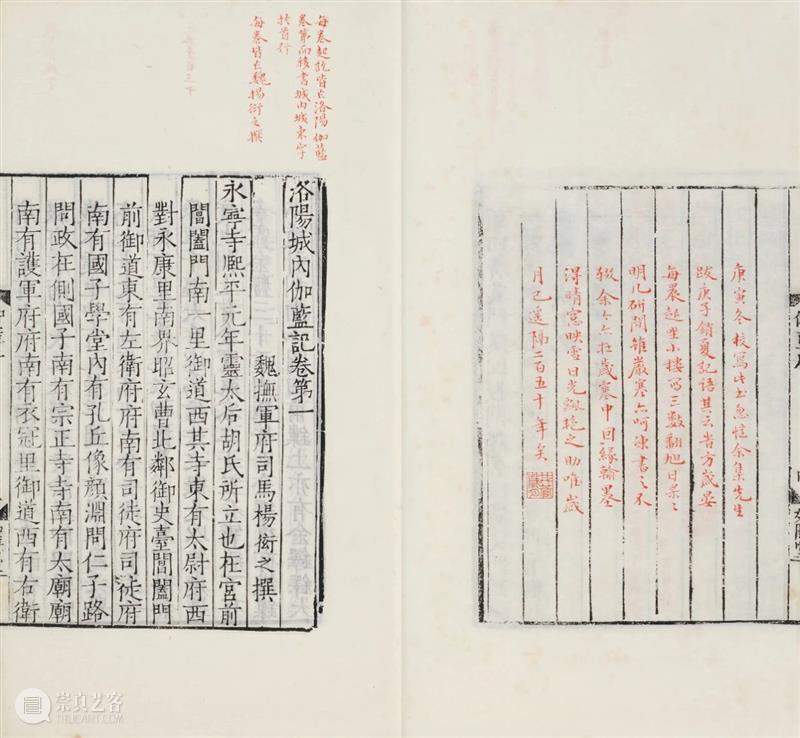 庚寅冬校寫此書忽憶余集先生
跋庚子銷夏記語其云省方歲晏
每晨起坐小樓寫三數翻旭日杲杲
明几研間雖嚴寒亦呵凍書之不
輟余今亦在歲寒中回緣翰墨
得晴窗映雪日光之助唯歲
月已遙隔二百五十年矣
每卷起訖皆洛陽伽藍
卷第而移書城內城東字
於首行
每卷皆魏楊衒之撰
洛陽城內伽藍記卷第一
魏撫軍府司馬楊衒之撰
永寧寺熙平元年靈太后胡氏所立也在宮前
閶闔門南一里御道西其寺東有太尉府西
對永康里南界昭玄曹北鄰御史臺閶闔門
前御道東有左衛府府南有司徒府司徒府
南有國子學堂內有孔丘像顏淵問仁子路
問政在側國子南有宗正寺寺南有太廟廟
南有護軍府府南有衣冠里御道西有右衛
崇真艺客
TRUEART.COM